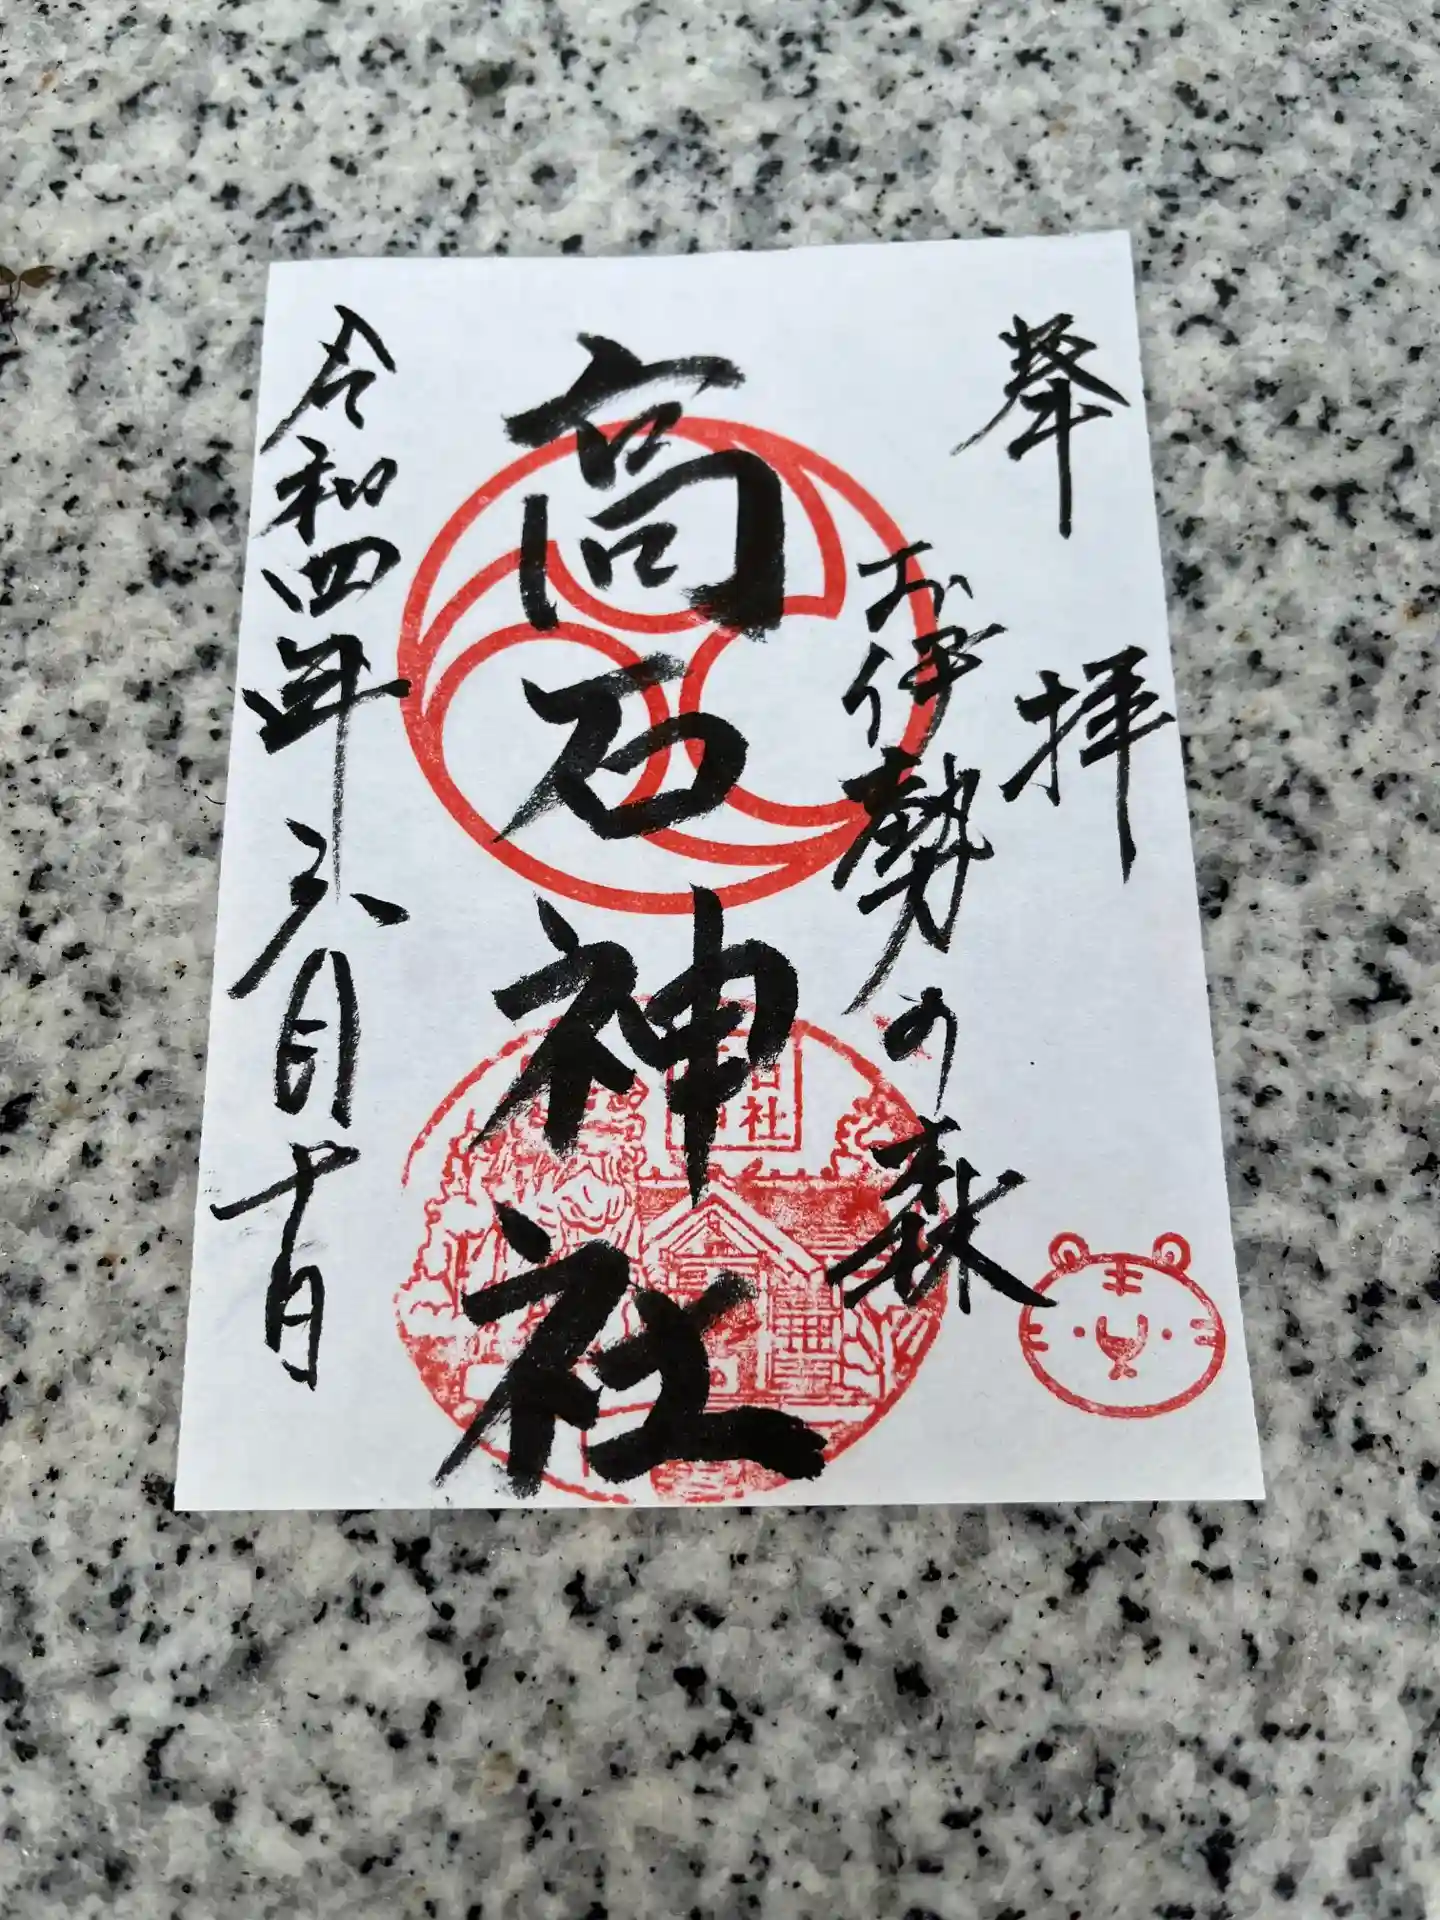 奉拝
お伊勢の森
高石神社
令和四年六月十日